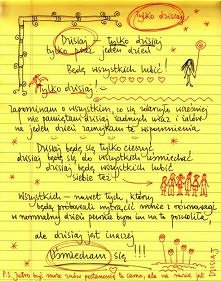 Tylko dzisiaj
Dzisiaj - tylko dzisiaj
tylko przez jeden dzień
Będę wszystkich lubić!
Tylko dzisiaj!
Zapominam o wszystkim, co się zdarzyło wcześniej
nie pamiętam dzisiaj żadnych uraz i żalów
na jeden dzień zamykam te wspomnienia
Dzisiaj będę się tylko cieszyć
dzisiaj będę się do wszystkich uśmiechać
dzisiaj będę wszystkich lubić
siebie też
Wszystkich - nawet tych, którzy
będą próbowali wytrącić mnie z równowagi
w normalny dzień pewnie bym im na to pozwoliła
ale dzisiaj jest inaczej
Uśmiecham się!!!
P.S. Jutro być może znów postanowię to samo, ale na razie jest
DZISIAJ